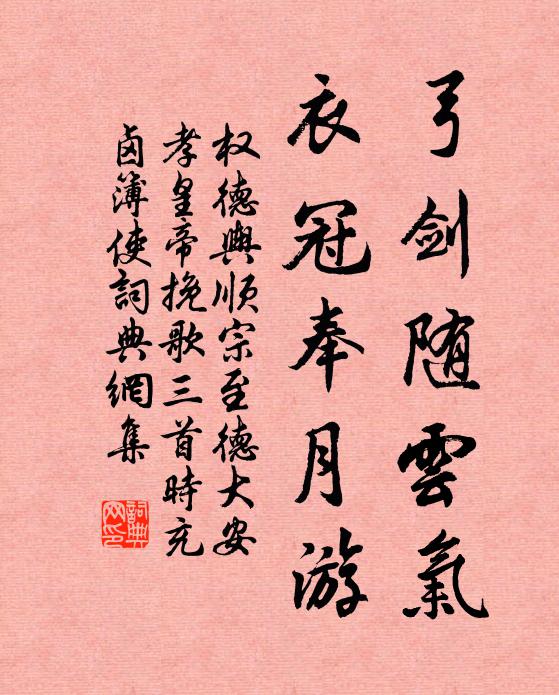 弓剑随雲氣
衣冠奉月游
权德輿順宗至德大安
孝皇帝挽歌三首時充
卤簿使詞典網集
詞典網印